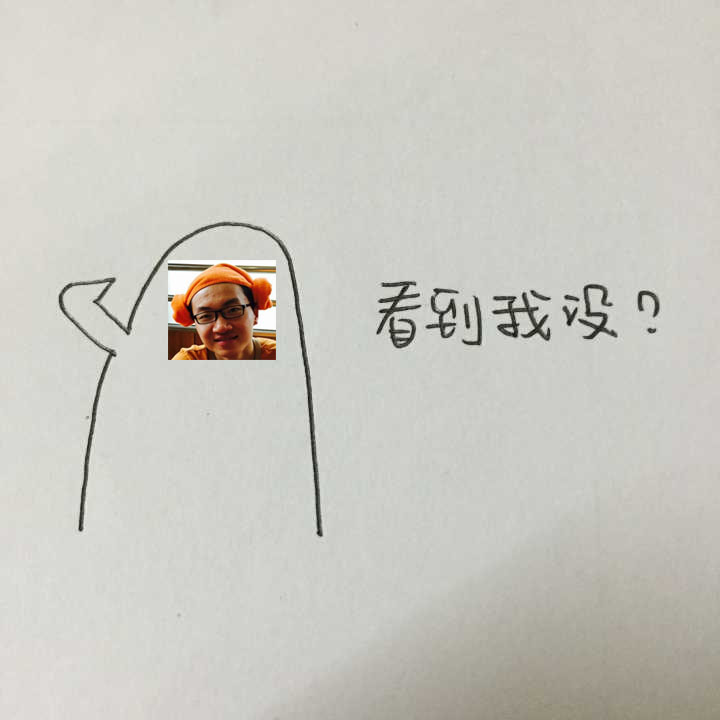 看到我没？